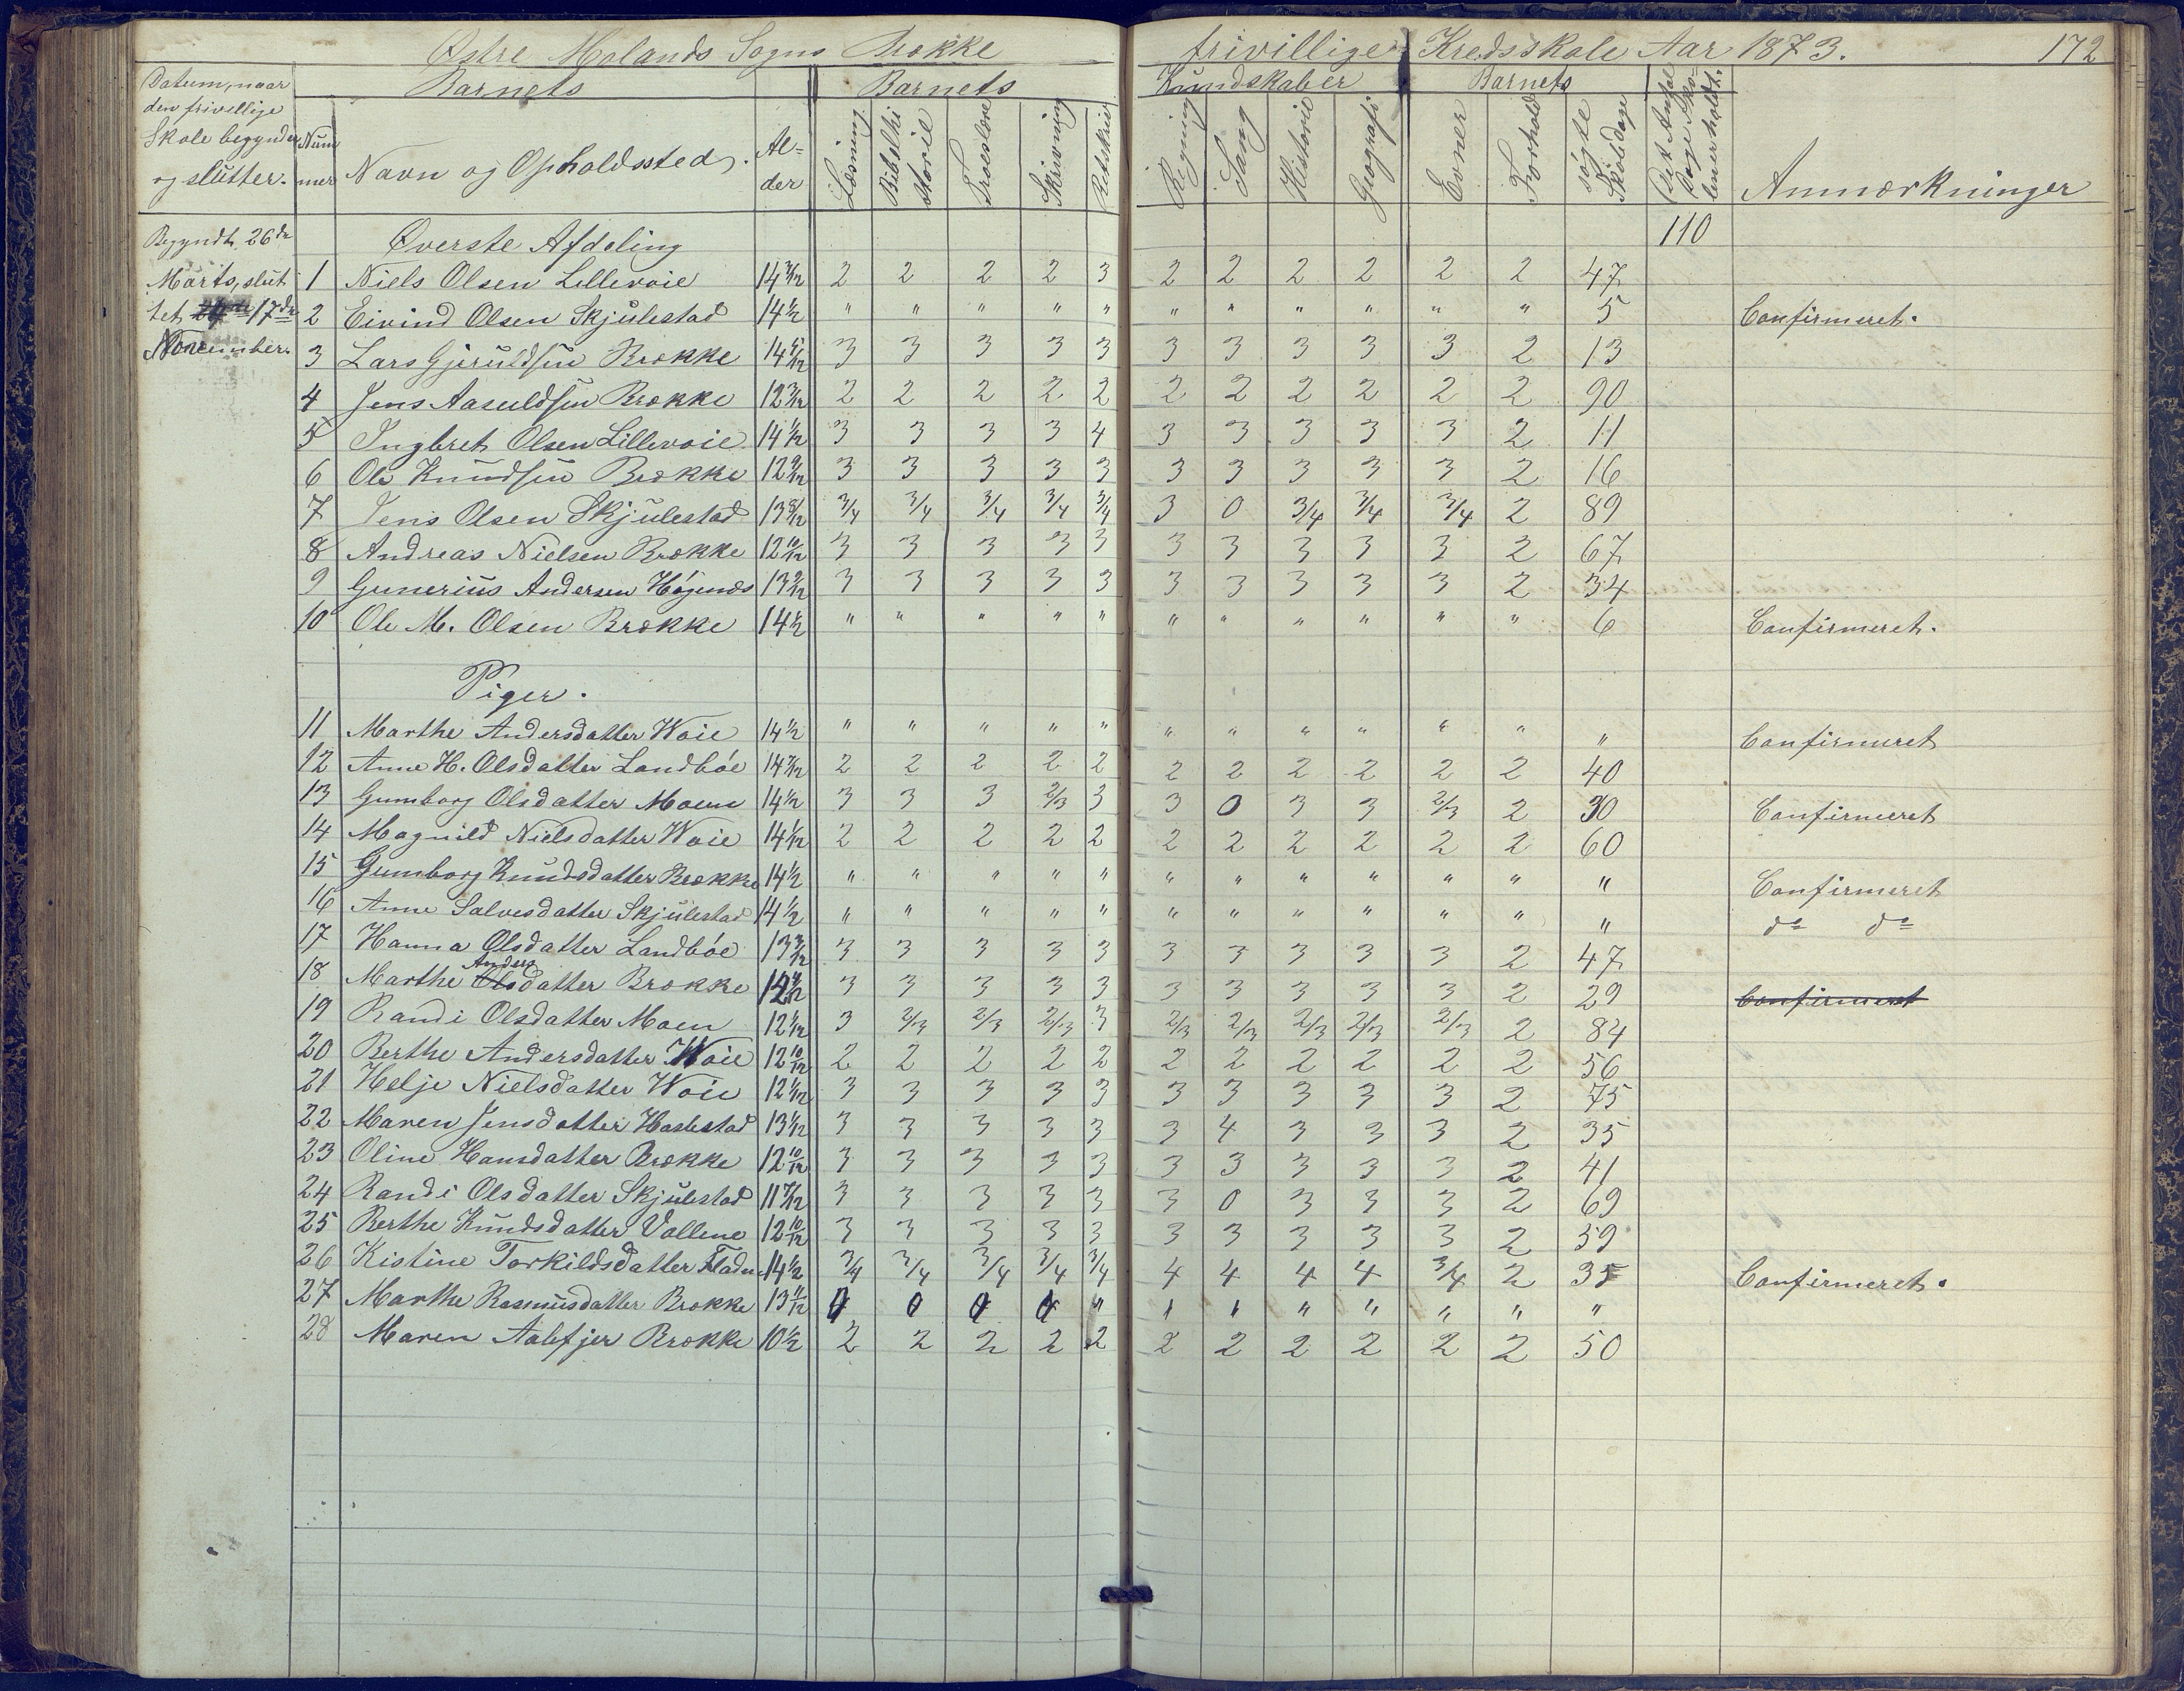 Østre Molands Sogns Brække frivillige Kredsskole Aar 1873. 172
Datum, naar den frivillige Skole begynder og slutter.
Nummer
Barnets
Navn og Opholdssted.
Alder
Barnets Kundskaber
Læsning
Bibelhistorie
Troeslære
Skrivning
Retskriv
Regning
Sang
Historie
Geografi
Barnets
Evner
Forhold
søgte Skoledage
Det Antal Dage Skolen er holdt.
Anmærkninger
Begyndt 26de
Marts, slut
tet 17de
November.
Øverste Afdeling 110
1 Niels Olsen Lillevoie 14 3/12 2 2 2 2 3 2 2 2 2 2 2 47
2 Eivind Olsen Skjulestad 14 1/2 " " " " " " " " " " " 5 Confirmeret.
3 Lars Gjeruldsen Brække 14 5/12 3 3 3 3 3 3 3 3 3 3 2 13
4 Jens Aasuldsen Brække 12 3/12 2 2 2 2 2 2 2 2 2 2 2 90
5 Ingbret Olsen Lillevoie 14 1/12 3 3 3 3 4 3 3 3 3 3 2 11
6 Ole Knudsen Brække 12 9/12 3 3 3 3 3 3 3 3 3 3 2 16
7 Jens Olsen Skjulestad 13 8/12 3/4 3/4 3/4 3/4 3/4 3 0 3/4 3/4 3/4 2 89
8 Andreas Nielsen Brække 12 10/12 3 3 3 3 3 3 3 3 3 3 2 67
9 Gunerius Andersen Høgenæs 13 9/12 3 3 3 3 3 3 3 3 3 3 2 34
10 Ole M. Olsen Brække 14 1/2 " " " " " " " " " " " 6 Confirmeret.
Piger.
11 Marthe Andersdatter Woie 14 1/2 " " " " " " " " " " " " Confirmeret
12 Anne H. Olsdatter Landbøe 14 3/12 2 2 2 2 2 2 2 2 2 2 2 40
13 Gumborg Olsdatter Moen 14 1/2 3 3 3 2/3 3 3 0 3 3 2/3 2 30 Confirmeret
14 Magnild Nielsdatter Woie 14 1/12 2 2 2 2 2 2 2 2 2 2 2 60
15 Gumborg Knudsdatter Brække 14 1/2 " " " " " " " " " " " " Confirmeret
16 Anne Salvesdatter Skjulestad 14 1/2 " " " " " " " " " " " " do do
17 Hanna Olsdatter Landbøe 13 3/12 3 3 3 3 3 3 3 3 3 3 2 47
18 Marthe Andersdatter Brække 3 3 3 3 3 3 3 3 3 3 2 29 Confirmeret
19 Randi Olsdatter Moen 12 1/12 3 2/3 2/3 2/3 3 2/3 2/3 2/3 2/3 2/3 2 84
20 Berthe Andersdatter Woie 12 10/12 2 2 2 2 2 2 2 2 2 2 2 56
21 Helje Nielsdatter Woie 12 1/12 3 3 3 3 3 3 3 3 3 3 2 75
22 Maren Jensdatter Haslestad 13 1/12 3 3 3 3 3 3 4 3 3 3 2 35
23 Oline Hansdatter Brække 12 10/12 3 3 3 3 3 3 3 3 3 3 2 41
24 Randi Olsdatter Skjulestad 11 7/12 3 3 3 3 3 3 0 3 3 3 2 69
25 Berthe Knudsdatter Vollene 12 10/12 3 3 3 3 3 3 3 3 3 3 2 59
26 Kistine Torkildsdatter 14 1/2 3/4 3/4 3/4 3/4 3/4 4 4 4 4 3/4 2 35 Confirmeret.
27 Marthe Rasmusdatter Brække 13 11/12 0 0 0 0 " " " " " " " "
28 Maren Aalefjer Brække 10 1/2 2 2 2 2 2 2 2 2 2 2 2 50